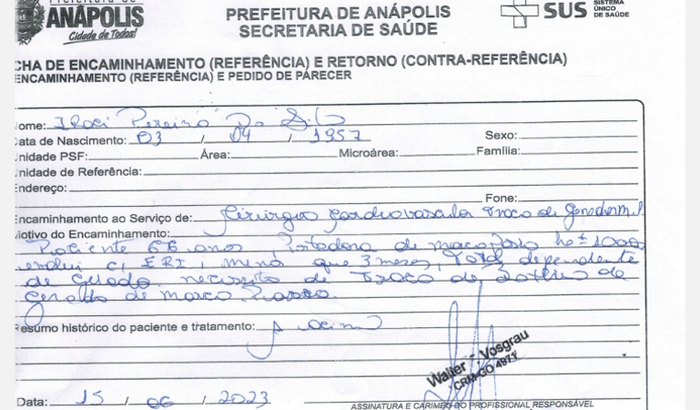 ANÁPOLIS
Cidade de Todos!
PREFEITURA DE ANÁPOLIS
SECRETARIA DE SAÚDE
SUS SISTEMA ÚNICO DE SAÚDE
CHA DE ENCAMINHAMENTO (REFERÊNCIA) E RETORNO (CONTRA-REFERÊNCIA)
ENCAMINHAMENTO (REFERÊNCIA) E PEDIDO DE PARECER
ome: Iraci Pereira Da Silva
ata de Nascimento: 03 / 04 / 1957 Sexo:
nidade PSF: Área: Microárea: Família:
nidade de Referência:
Endereço:
Fone:
Encaminhamento ao Serviço de: Cirurgia Cardiovascular Troca de
otivo do Encaminhamento:
Paciente 66 anos, Portadora de marcapasso há ± 10 anos
c/ ERI, menos que 3 meses, Total dependente
de Gerador necessita de Troca de
Gerador de Marca Passo.
Resumo histórico do paciente e tratamento:
Walter - Vosgrau
CRM-GO 4971
Data: 15 / 06 / 2023
ASSINATURA E CARIMBO DO PROFISSIONAL RESPONSÁVEL